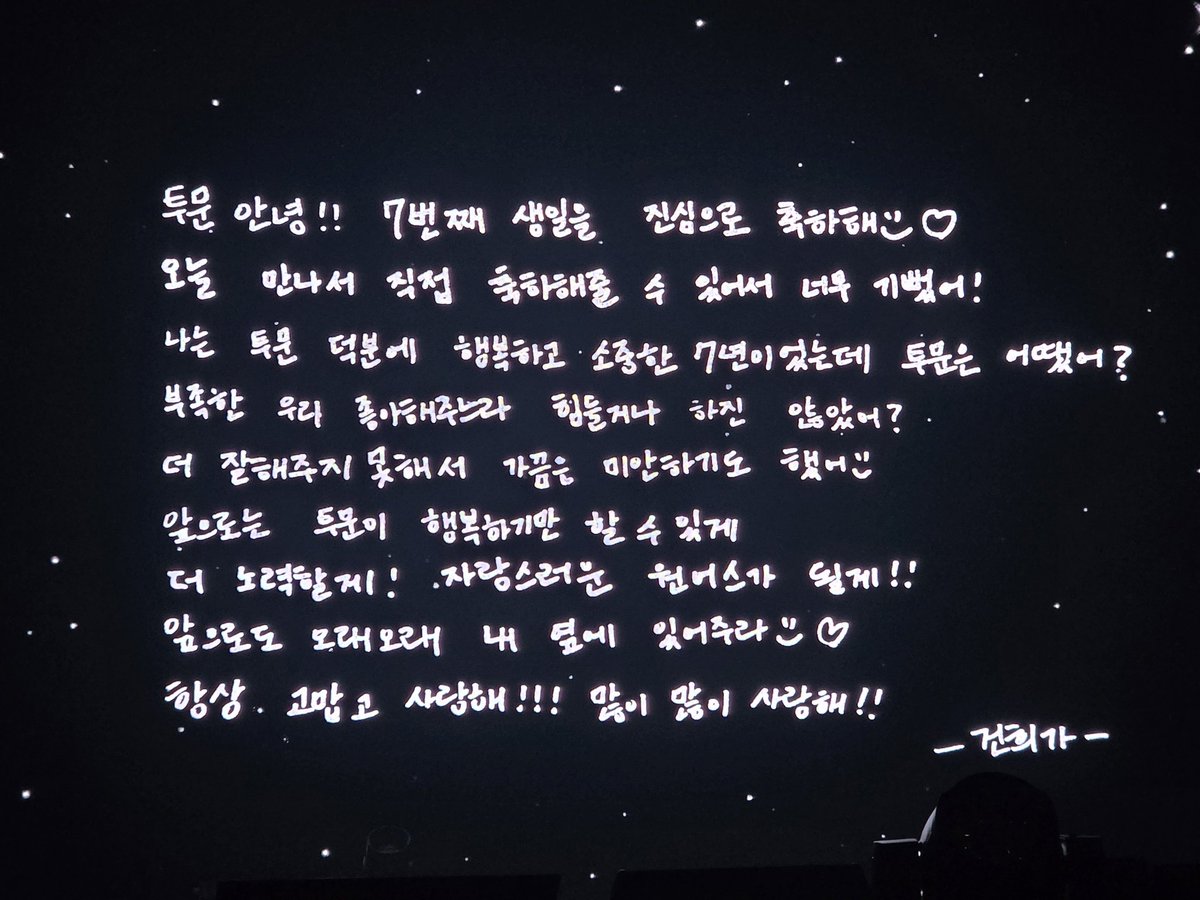 투문 안녕!! 7번째 생일을 진심으로 축하해 :) ♡
오늘 만나서 직접 축하해줄 수 있어서 너무 기뻤어!
나는 투문 덕분에 행복하고 소중한 7년이었는데 투문은 어땠어?
부족한 우리 좋아해주느라 힘들거나 하진 않았어?
더 잘해주지 못해서 가끔은 미안하기도 했어 :)
앞으로는 투문이 행복하기만 할 수 있게
더 노력할게! 자랑스러운 원어스가 될게!!
앞으로도 오래오래 내 옆에 있어주라 :) ♡
항상 고맙고 사랑해!!! 많이 많이 사랑해!!
- 건희가 -